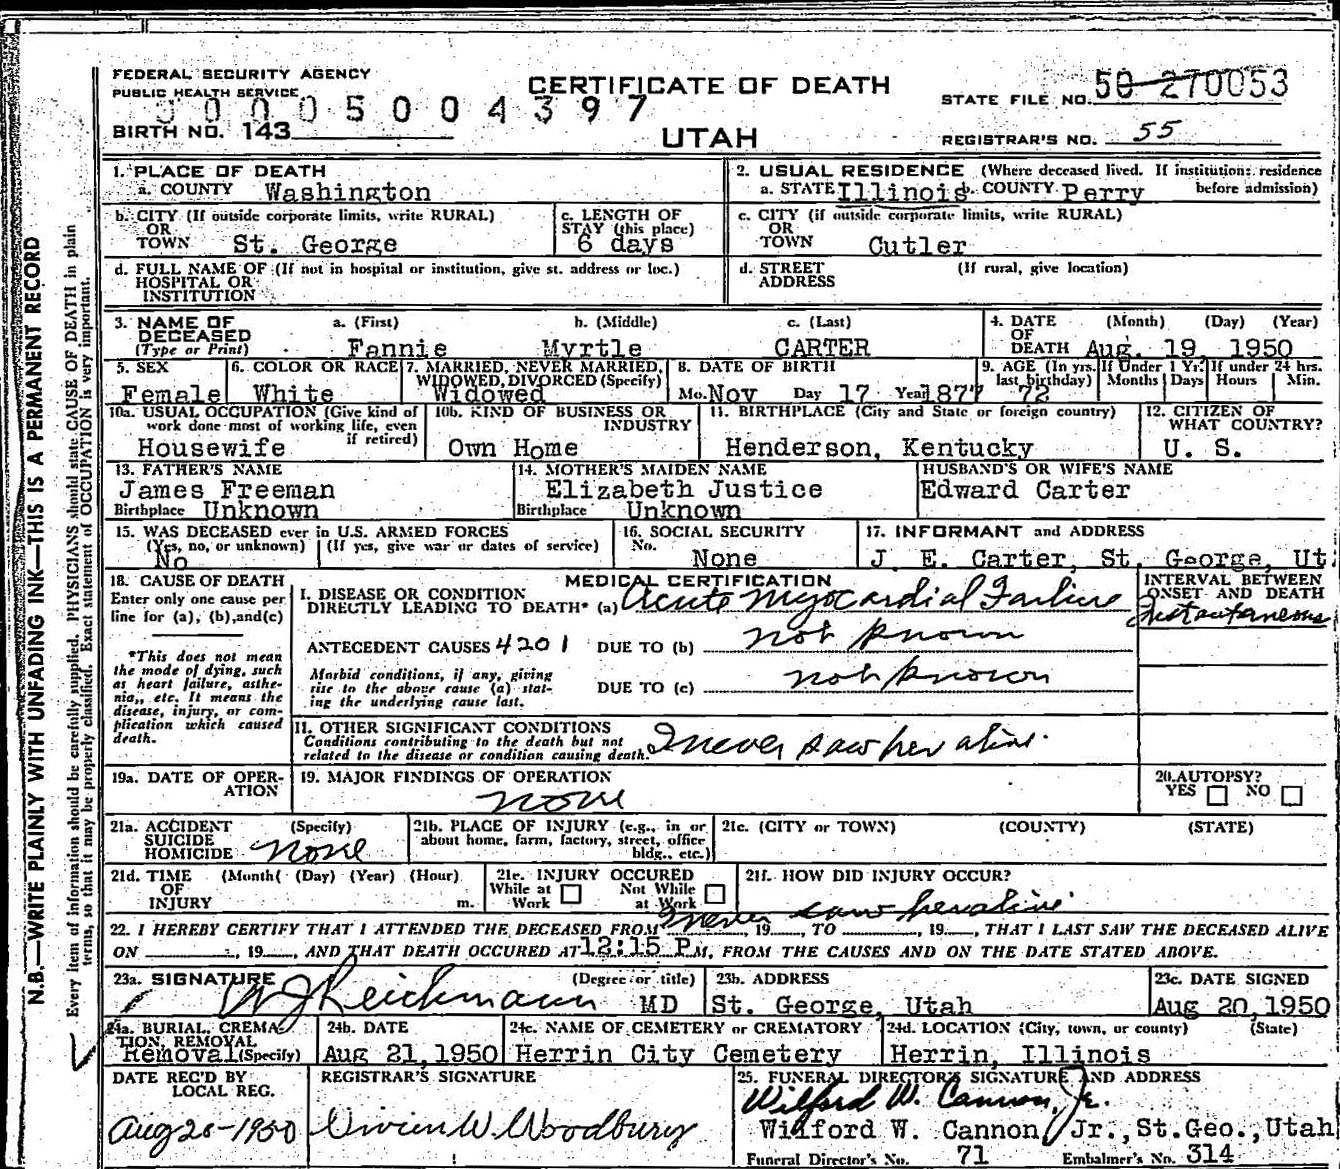 FEDERAL SECURITY AGENCY
PUBLIC HEALTH SERVICE
CERTIFICATE OF DEATH
STATE FILE NO. 50 270053
0005004397
BIRTH NO. 143
UTAH
REGISTRAR'S NO. 55
1. PLACE OF DEATH
a. COUNTY Washington
2. USUAL RESIDENCE (Where deceased lived. If institution: residence before admission)
a. STATE Illinois b. COUNTY Perry
b. CITY (If outside corporate limits, write RURAL)
OR
TOWN St. George
c. LENGTH OF
STAY (this place)
6 days
c. CITY (if outside corporate limits, write RURAL)
OR
TOWN Cutler
d. FULL NAME OF (If not in hospital or institution, give st. address or loc.)
HOSPITAL OR
INSTITUTION
d. STREET (If rural, give location)
ADDRESS
3. NAME OF DECEASED
(Type or Print)
a. (First) b. (Middle) c. (Last)
Fannie Myrtle CARTER
4. DATE OF DEATH (Month) (Day) (Year)
Aug. 19, 1950
5. SEX
Female
6. COLOR OR RACE
White
7. MARRIED, NEVER MARRIED,
WIDOWED, DIVORCED (Specify)
Widowed
8. DATE OF BIRTH
Mo. Nov Day 17 Year 1877
9. AGE (In yrs. last birthday)
72
If Under 1 Yr.
Months Days
If under 24 hrs.
Hours Min.
10a. USUAL OCCUPATION (Give kind of
work done most of working life, even
if retired)
Housewife
10b. KIND OF BUSINESS OR
INDUSTRY
Own Home
11. BIRTHPLACE (City and State or foreign country)
Henderson, Kentucky
12. CITIZEN OF
WHAT COUNTRY?
U. S.
13. FATHER'S NAME
James Freeman
Birthplace Unknown
14. MOTHER'S MAIDEN NAME
Elizabeth Justice
Birthplace Unknown
HUSBAND'S OR WIFE'S NAME
Edward Carter
15. WAS DECEASED ever in U.S. ARMED FORCES
(Yes, no, or unknown) (If yes, give war or dates of service)
No
16. SOCIAL SECURITY
No. None
17. INFORMANT and ADDRESS
J. E. Carter, St. George, Ut.
18. CAUSE OF DEATH
Enter only one cause per
line for (a), (b), and (c)
*This does not mean
the mode of dying, such
as heart failure, asthe-
nia, etc. It means the
disease, injury, or com-
plication which caused
death.
MEDICAL CERTIFICATION
I. DISEASE OR CONDITION
DIRECTLY LEADING TO DEATH* (a) Acute Myocardial Failure
ANTECEDENT CAUSES 4201 DUE TO (b) not known
Morbid conditions, if any, giving
rise to the above cause (a) stat-
ing the underlying cause last.
DUE TO (c) not known
INTERVAL BETWEEN
ONSET AND DEATH
Instantaneous
11. OTHER SIGNIFICANT CONDITIONS
Conditions contributing to the death but not
related to the disease or condition causing death.
I never saw her alive.
19a. DATE OF OPER-
ATION
19. MAJOR FINDINGS OF OPERATION
none
20. AUTOPSY?
YES NO
21a. ACCIDENT (Specify)
SUICIDE
HOMICIDE none
21b. PLACE OF INJURY (e.g., in or
about home, farm, factory, street, office
bldg., etc.)
21c. (CITY or TOWN) (COUNTY) (STATE)
21d. TIME (Month( (Day) (Year) (Hour)
OF
INJURY m.
21e. INJURY OCCURED
While at Work Not While at Work
21f. HOW DID INJURY OCCUR?
I never saw her alive
22. I HEREBY CERTIFY THAT I ATTENDED THE DECEASED FROM , 19 , TO , 19 , THAT I LAST SAW THE DECEASED ALIVE
ON , 19 , AND THAT DEATH OCCURED AT 12:15 P.M, FROM THE CAUSES AND ON THE DATE STATED ABOVE.
23a. SIGNATURE (Degree or title)
W J Reichmann MD
23b. ADDRESS
St. George, Utah
23c. DATE SIGNED
Aug 20, 1950
24a. BURIAL, CREMA-
TION, REMOVAL
Removal (Specify)
24b. DATE
Aug 21, 1950
24c. NAME OF CEMETERY or CREMATORY
Herrin City Cemetery
24d. LOCATION (City, town, or county) (State)
Herrin, Illinois
DATE REC'D BY
LOCAL REG.
Aug 20-1950
REGISTRAR'S SIGNATURE
Vivien W. Woodbury
25. FUNERAL DIRECTOR'S SIGNATURE AND ADDRESS
Wilford W. Cannon, Jr.
Wilford W. Cannon Jr., St.Geo., Utah
Funeral Director's No. 71 Embalmer's No. 314
N.B.—WRITE PLAINLY WITH UNFADING INK—THIS IS A PERMANENT RECORD
Every item of information should be carefully supplied. PHYSICIANS should state CAUSE OF DEATH in plain
terms, so that it may be properly classified. Exact statement of OCCUPATION is very important.